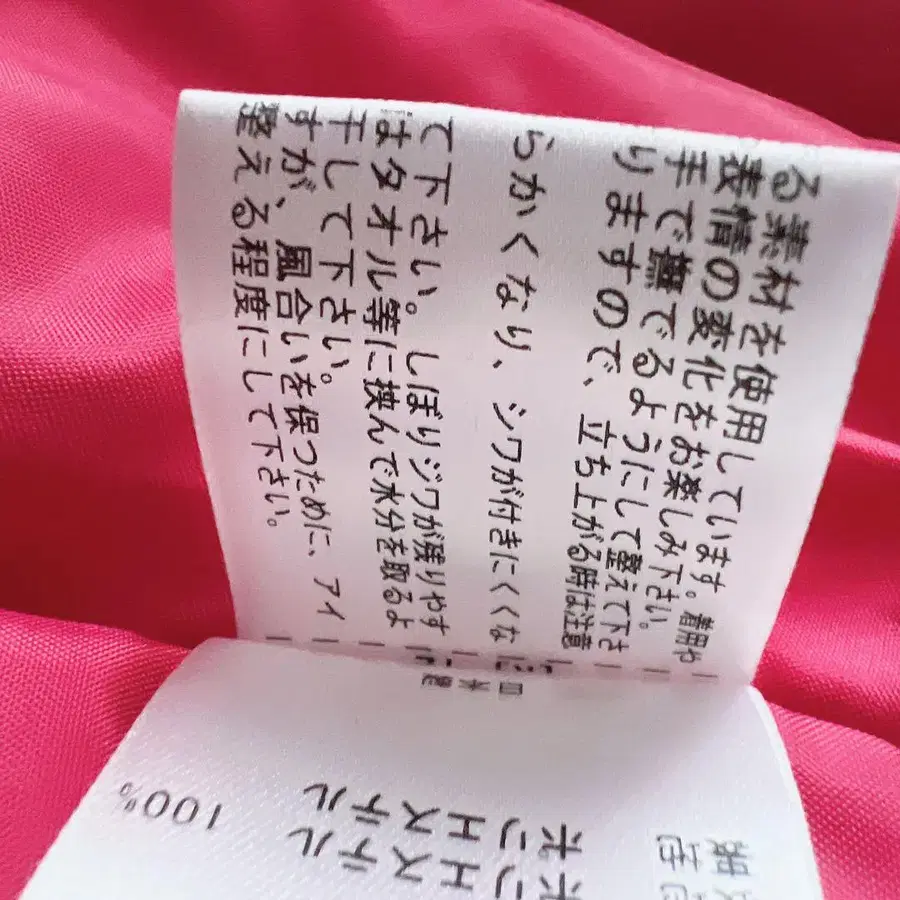 る素材を使用しています。着用や
表情の変化をお楽しみ下さい。
手で撫でるようにして整えて下さ
りますので、立ち上がる時は注意
らかくなり、シワが付きにくくな
て下さい。しぼりジワが残りやす
はタオル等に挟んで水分を取るよ
干して下さい。
すが、風合いを保つために、アイ
整える程度にして下さい。
ポリエステル
ポリエステル 100%